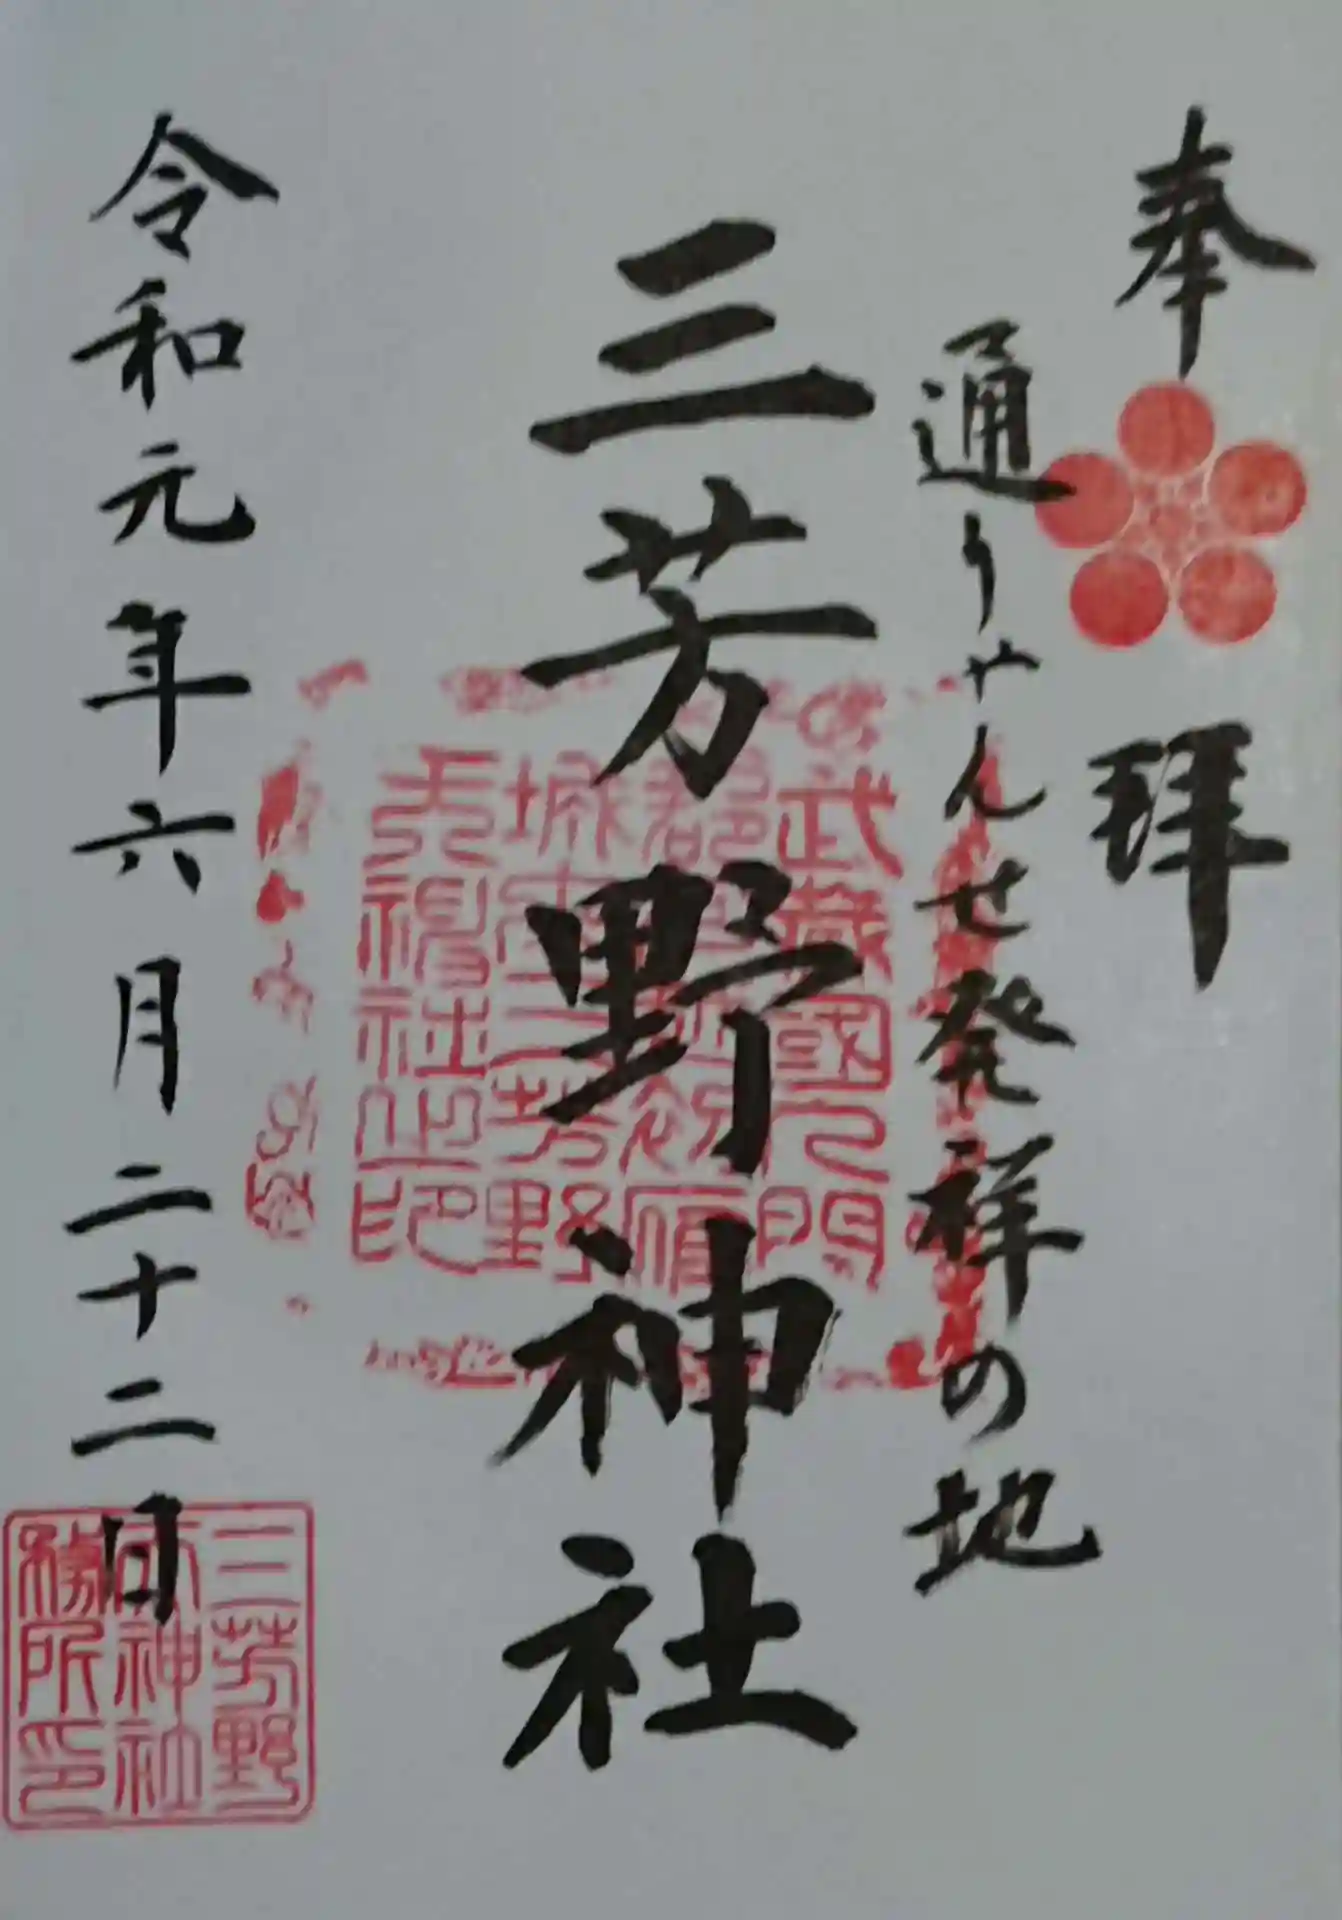 奉拝
通りゃんせ発祥の地
三芳野神社
武蔵國入間
郡
城内三芳野
天神社之印
令和元年六月二十二日
三芳野
神社
務所印